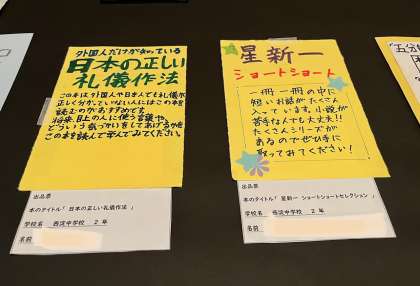 外国人だけが知っている
日本の正しい
礼儀作法
この本は外国人や日本人でも礼儀が
正しく分かっていない人にはこの本を
読むのがおすすめです。
将来、目上の人に使う言葉や、
どういう気づかいをしてあげるか
この本を読んで学んでみてください。
出品票
本のタイトル「 日本の正しい礼儀作法 」
学校名 西淀中学校 2 年
名前
星新一
ショートショート
一冊一冊の中に
短いお話がたくさん
入っています。小説が
苦手な人でも大丈夫!!
たくさんシリーズが
あるのでぜひ手に
取ってみてください!
出品票
本のタイトル「 星新一 ショートショートセレクション 」
学校名 西淀中学校 2 年
名前
五分